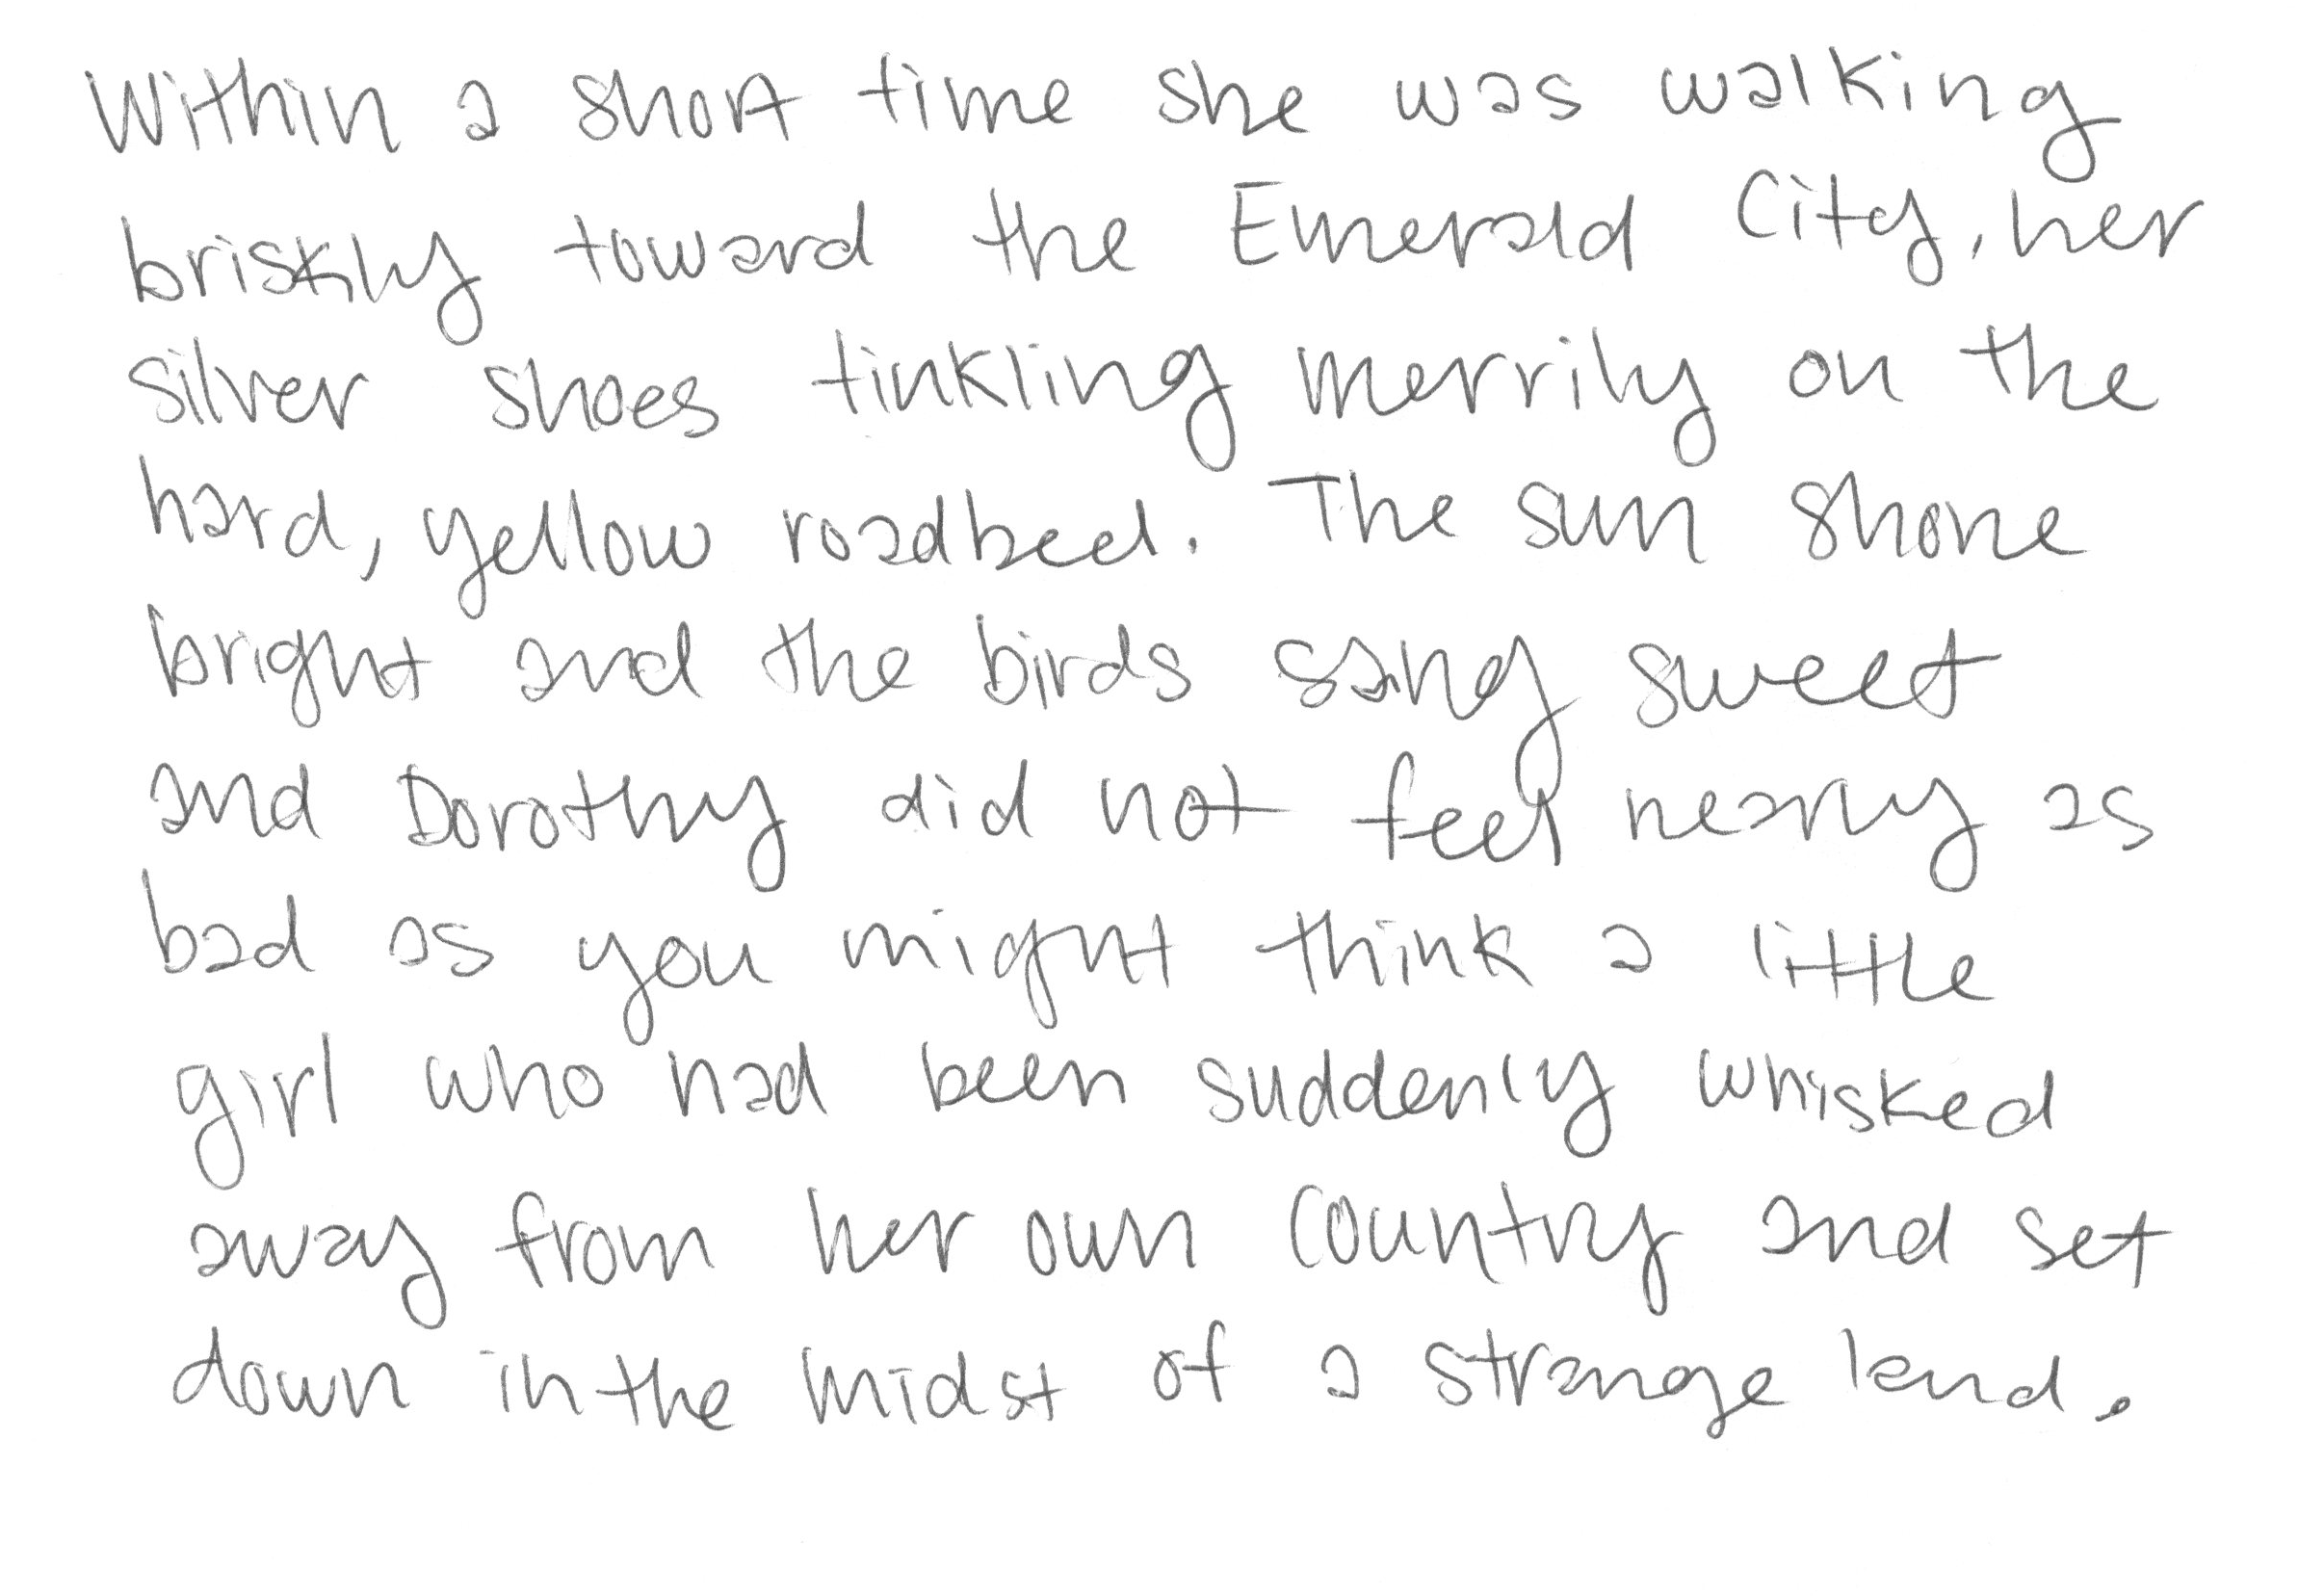 Within a short time she was walking
briskly toward the Emerald City, her
silver shoes tinkling merrily on the
hard, yellow roadbed. The sun shone
bright and the birds sang sweet
and Dorothy did not feel nearly as
bad as you might think a little
girl who had been suddenly whisked
away from her own country and set
down in the midst of a strange land.